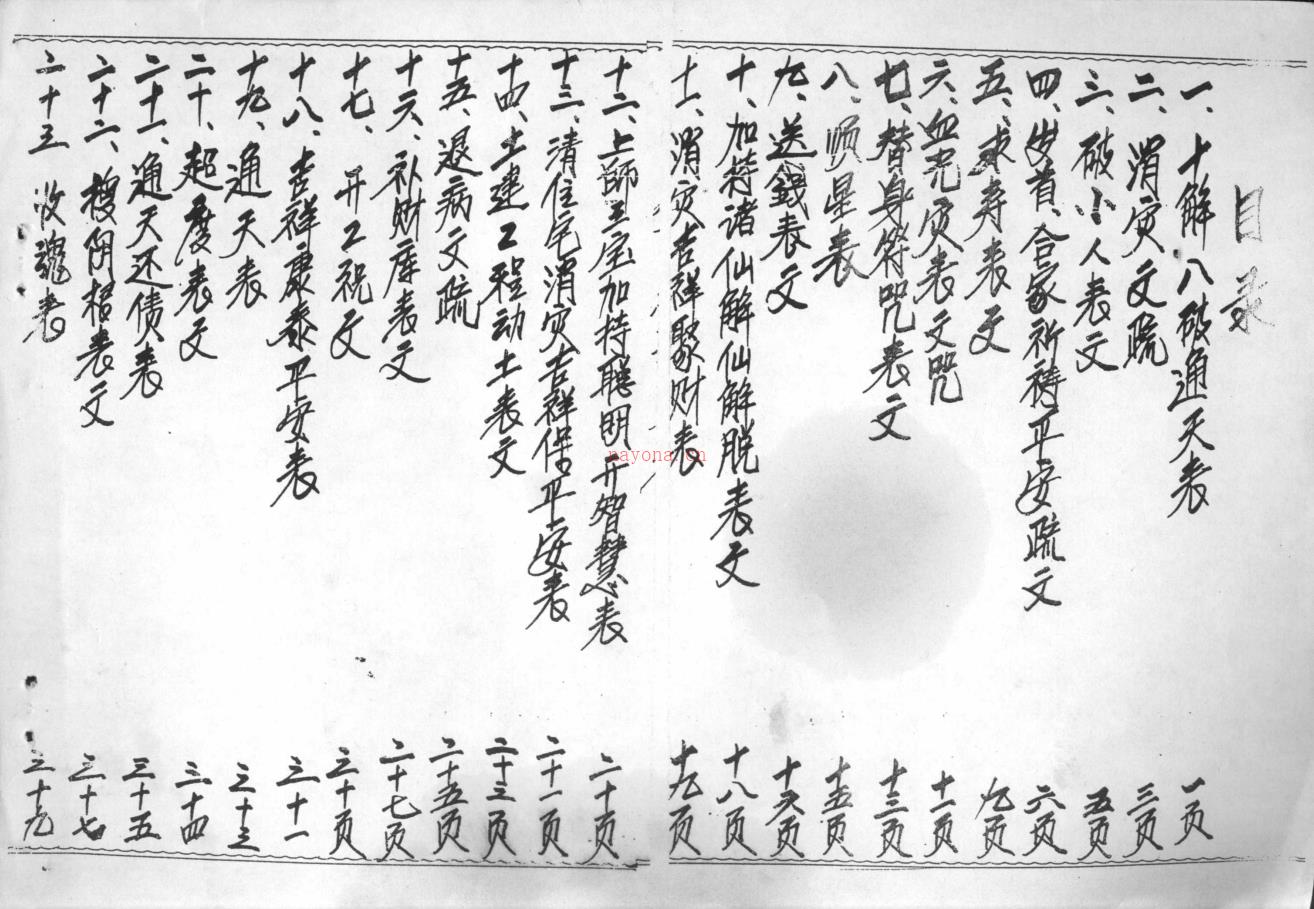 目录
一、十解八破通天表 一页
二、消灾文疏 三页
三、破小人表文 五页
四、岁首、合家祈祷平安疏文 六页
五、求寿表文 九页
六、血光灾表文咒 十一页
七、替身符咒表文 十三页
八、顺星表 十五页
九、送钱表文 十六页
十、加持诸仙解仙解脱表文 十八页
十一、消灾吉祥聚财表 十九页
十二、上師三宝加持聪明开智慧表 二十页
十三、清住宅消灾吉祥保平安表 二十一页
十四、土建工程动土表文 二十三页
十五、退病文疏 二十五页
十六、补财库表文 二十七页
十七、开工祝文 三十页
十八、吉祥康泰平安表 三十一
十九、通天表 三十三
二十、超度表文 三十四
二十一、通天还债表 三十五
二十二、拨阴棺表文 三十七
二十三 收魂表 三十九
nayona.cn